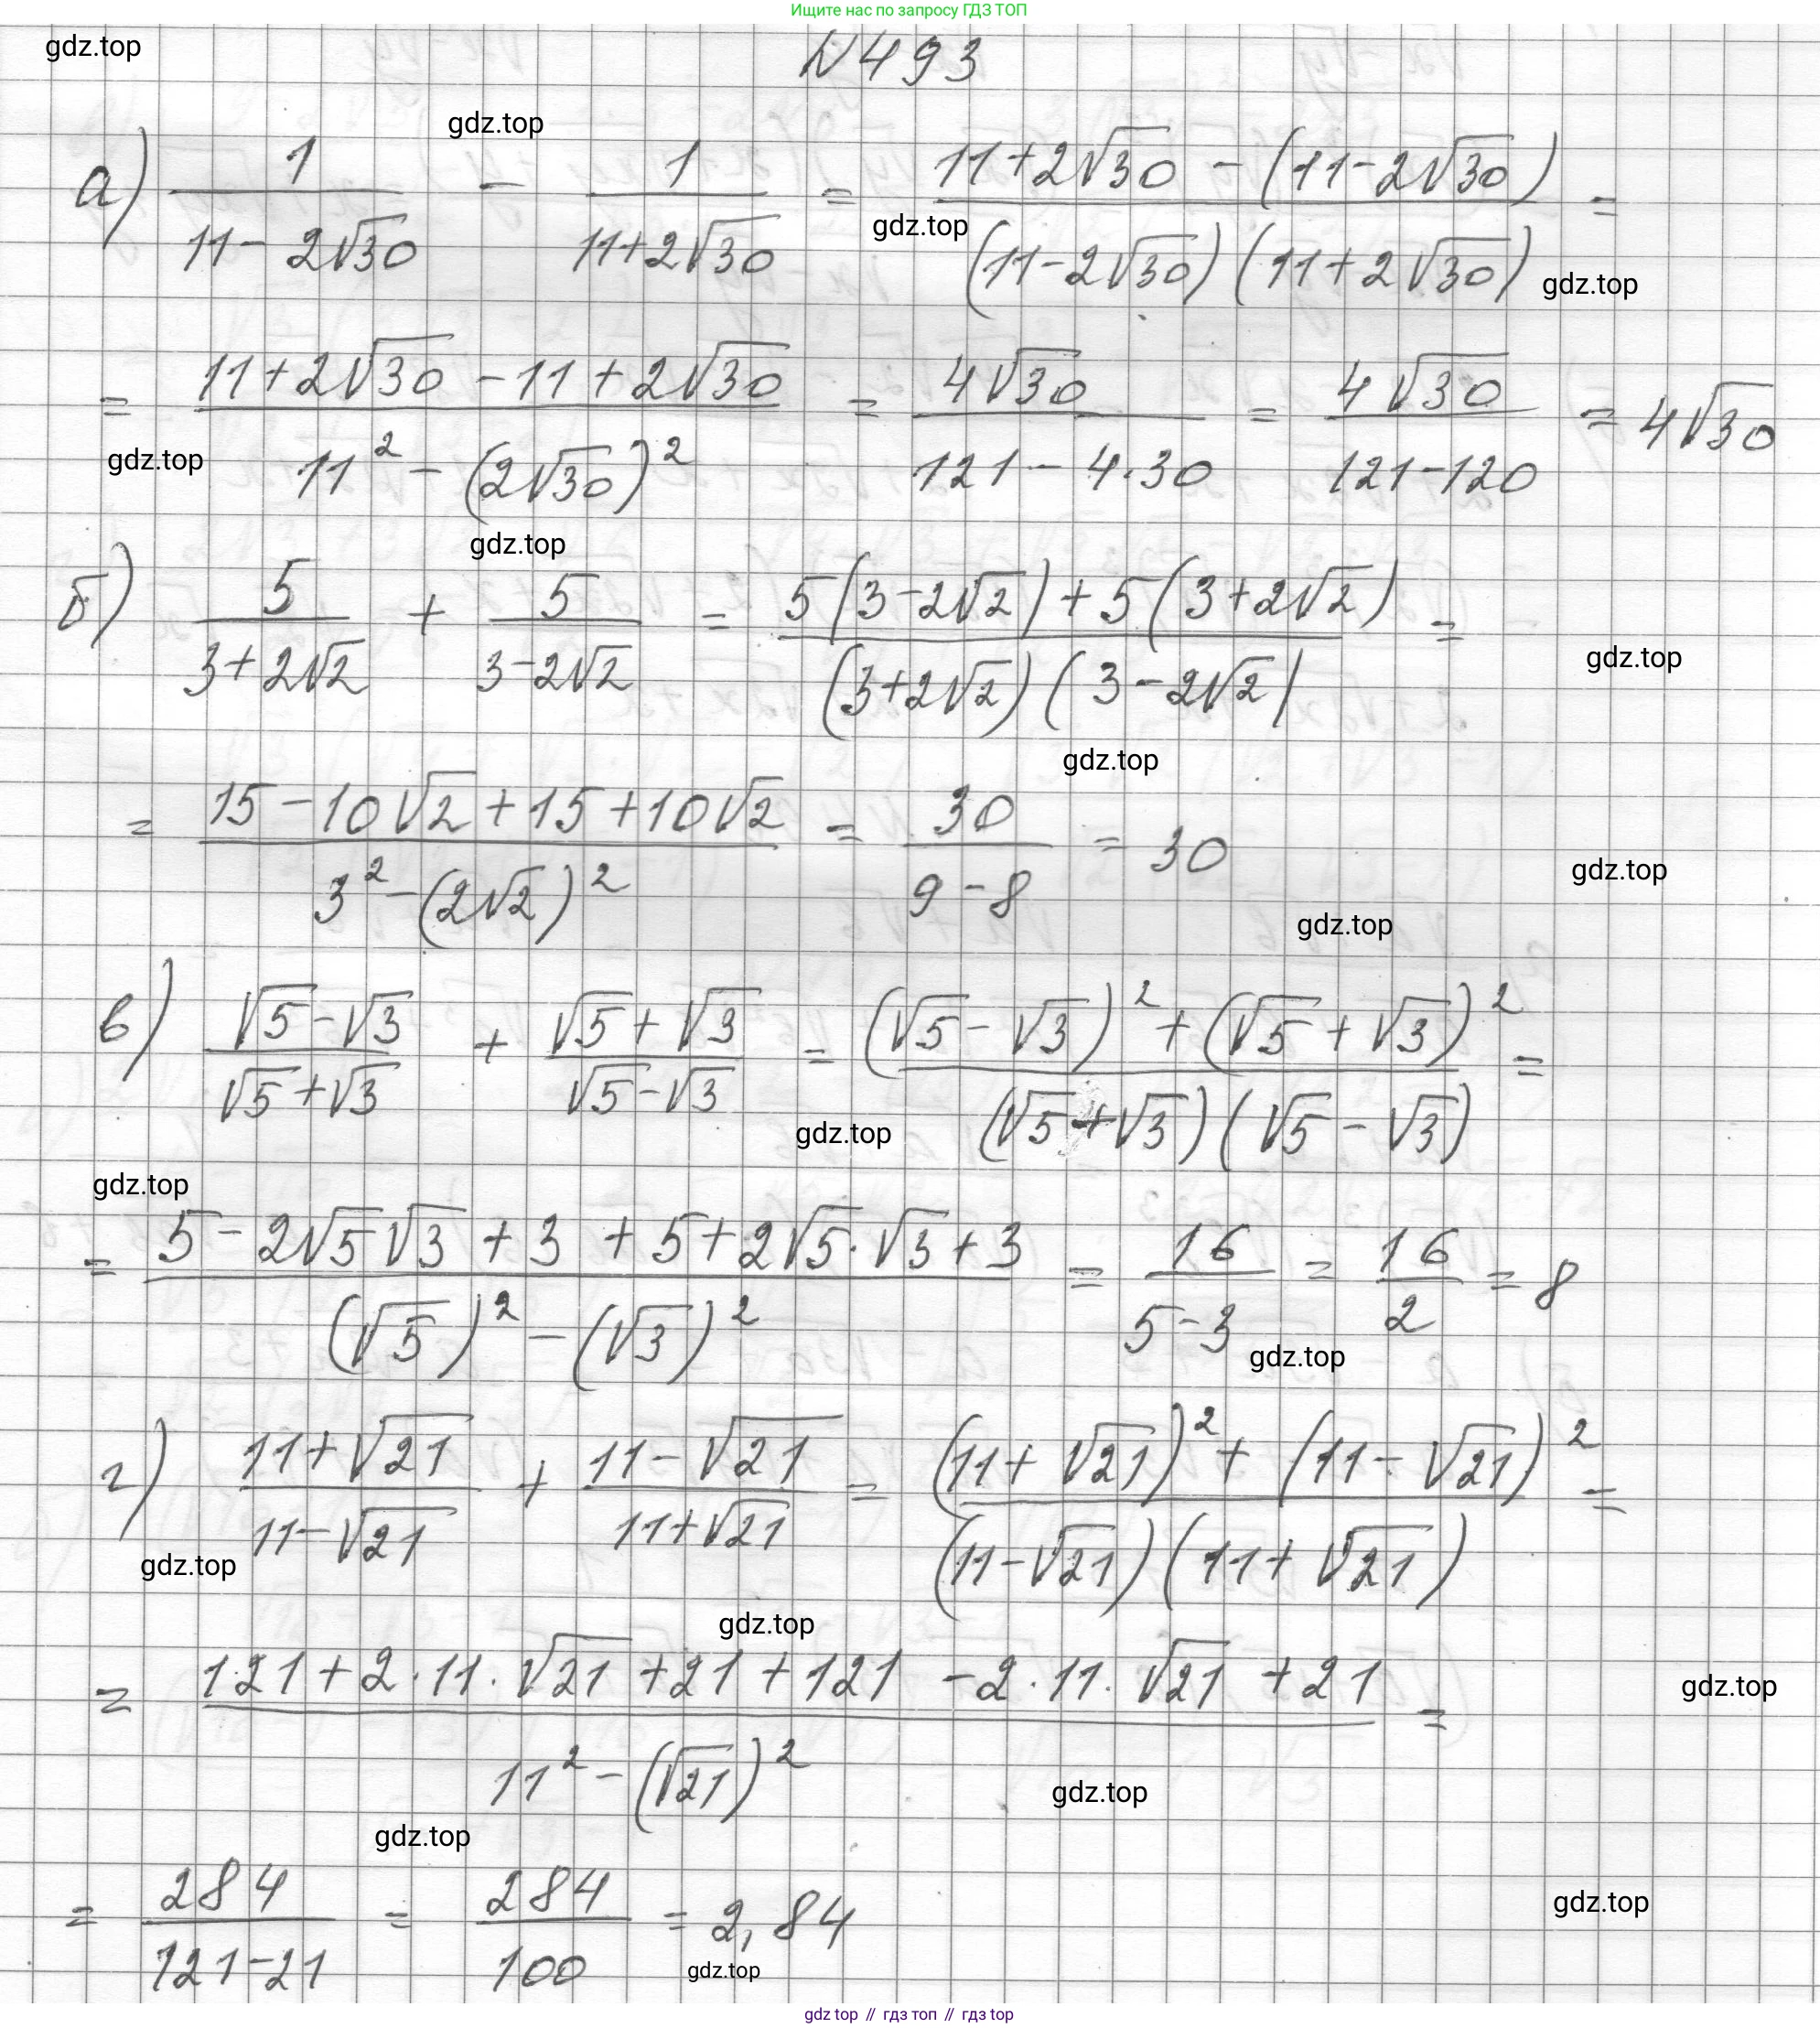 Ищите нас по запросу ГДЗ ТОП
gdz.top
N 493
gdz.top
а) 1/(11-2√30) - 1/(11+2√30) = (11+2√30 - (11-2√30))/((11-2√30)(11+2√30)) =
gdz.top
gdz.top
= (11+2√30 - 11+2√30)/(11² - (2√30)²) = 4√30/(121-4·30) = 4√30/(121-120) = 4√30
gdz.top
gdz.top
б) 5/(3+2√2) + 5/(3-2√2) = (5(3-2√2) + 5(3+2√2))/((3+2√2)(3-2√2)) =
gdz.top
gdz.top
= (15-10√2+15+10√2)/(3²-(2√2)²) = 30/(9-8) = 30
gdz.top
gdz.top
в) (√5-√3)/(√5+√3) + (√5+√3)/(√5-√3) = ((√5-√3)² + (√5+√3)²)/((√5+√3)(√5-√3)) =
gdz.top
gdz.top
= (5-2√5√3+3+5+2√5·√3+3)/((√5)²-(√3)²) = 16/(5-3) = 16/2 = 8
gdz.top
г) (11+√21)/(11-√21) + (11-√21)/(11+√21) = ((11+√21)² + (11-√21)²)/((11-√21)(11+√21)) =
gdz.top
gdz.top
= (121+2·11·√21+21+121-2·11·√21+21)/(11²-(√21)²) =
gdz.top
gdz.top
gdz.top
= 284/(121-21) = 284/100 = 2,84
gdz.top
gdz.top
gdz top // гдз топ // гдз top